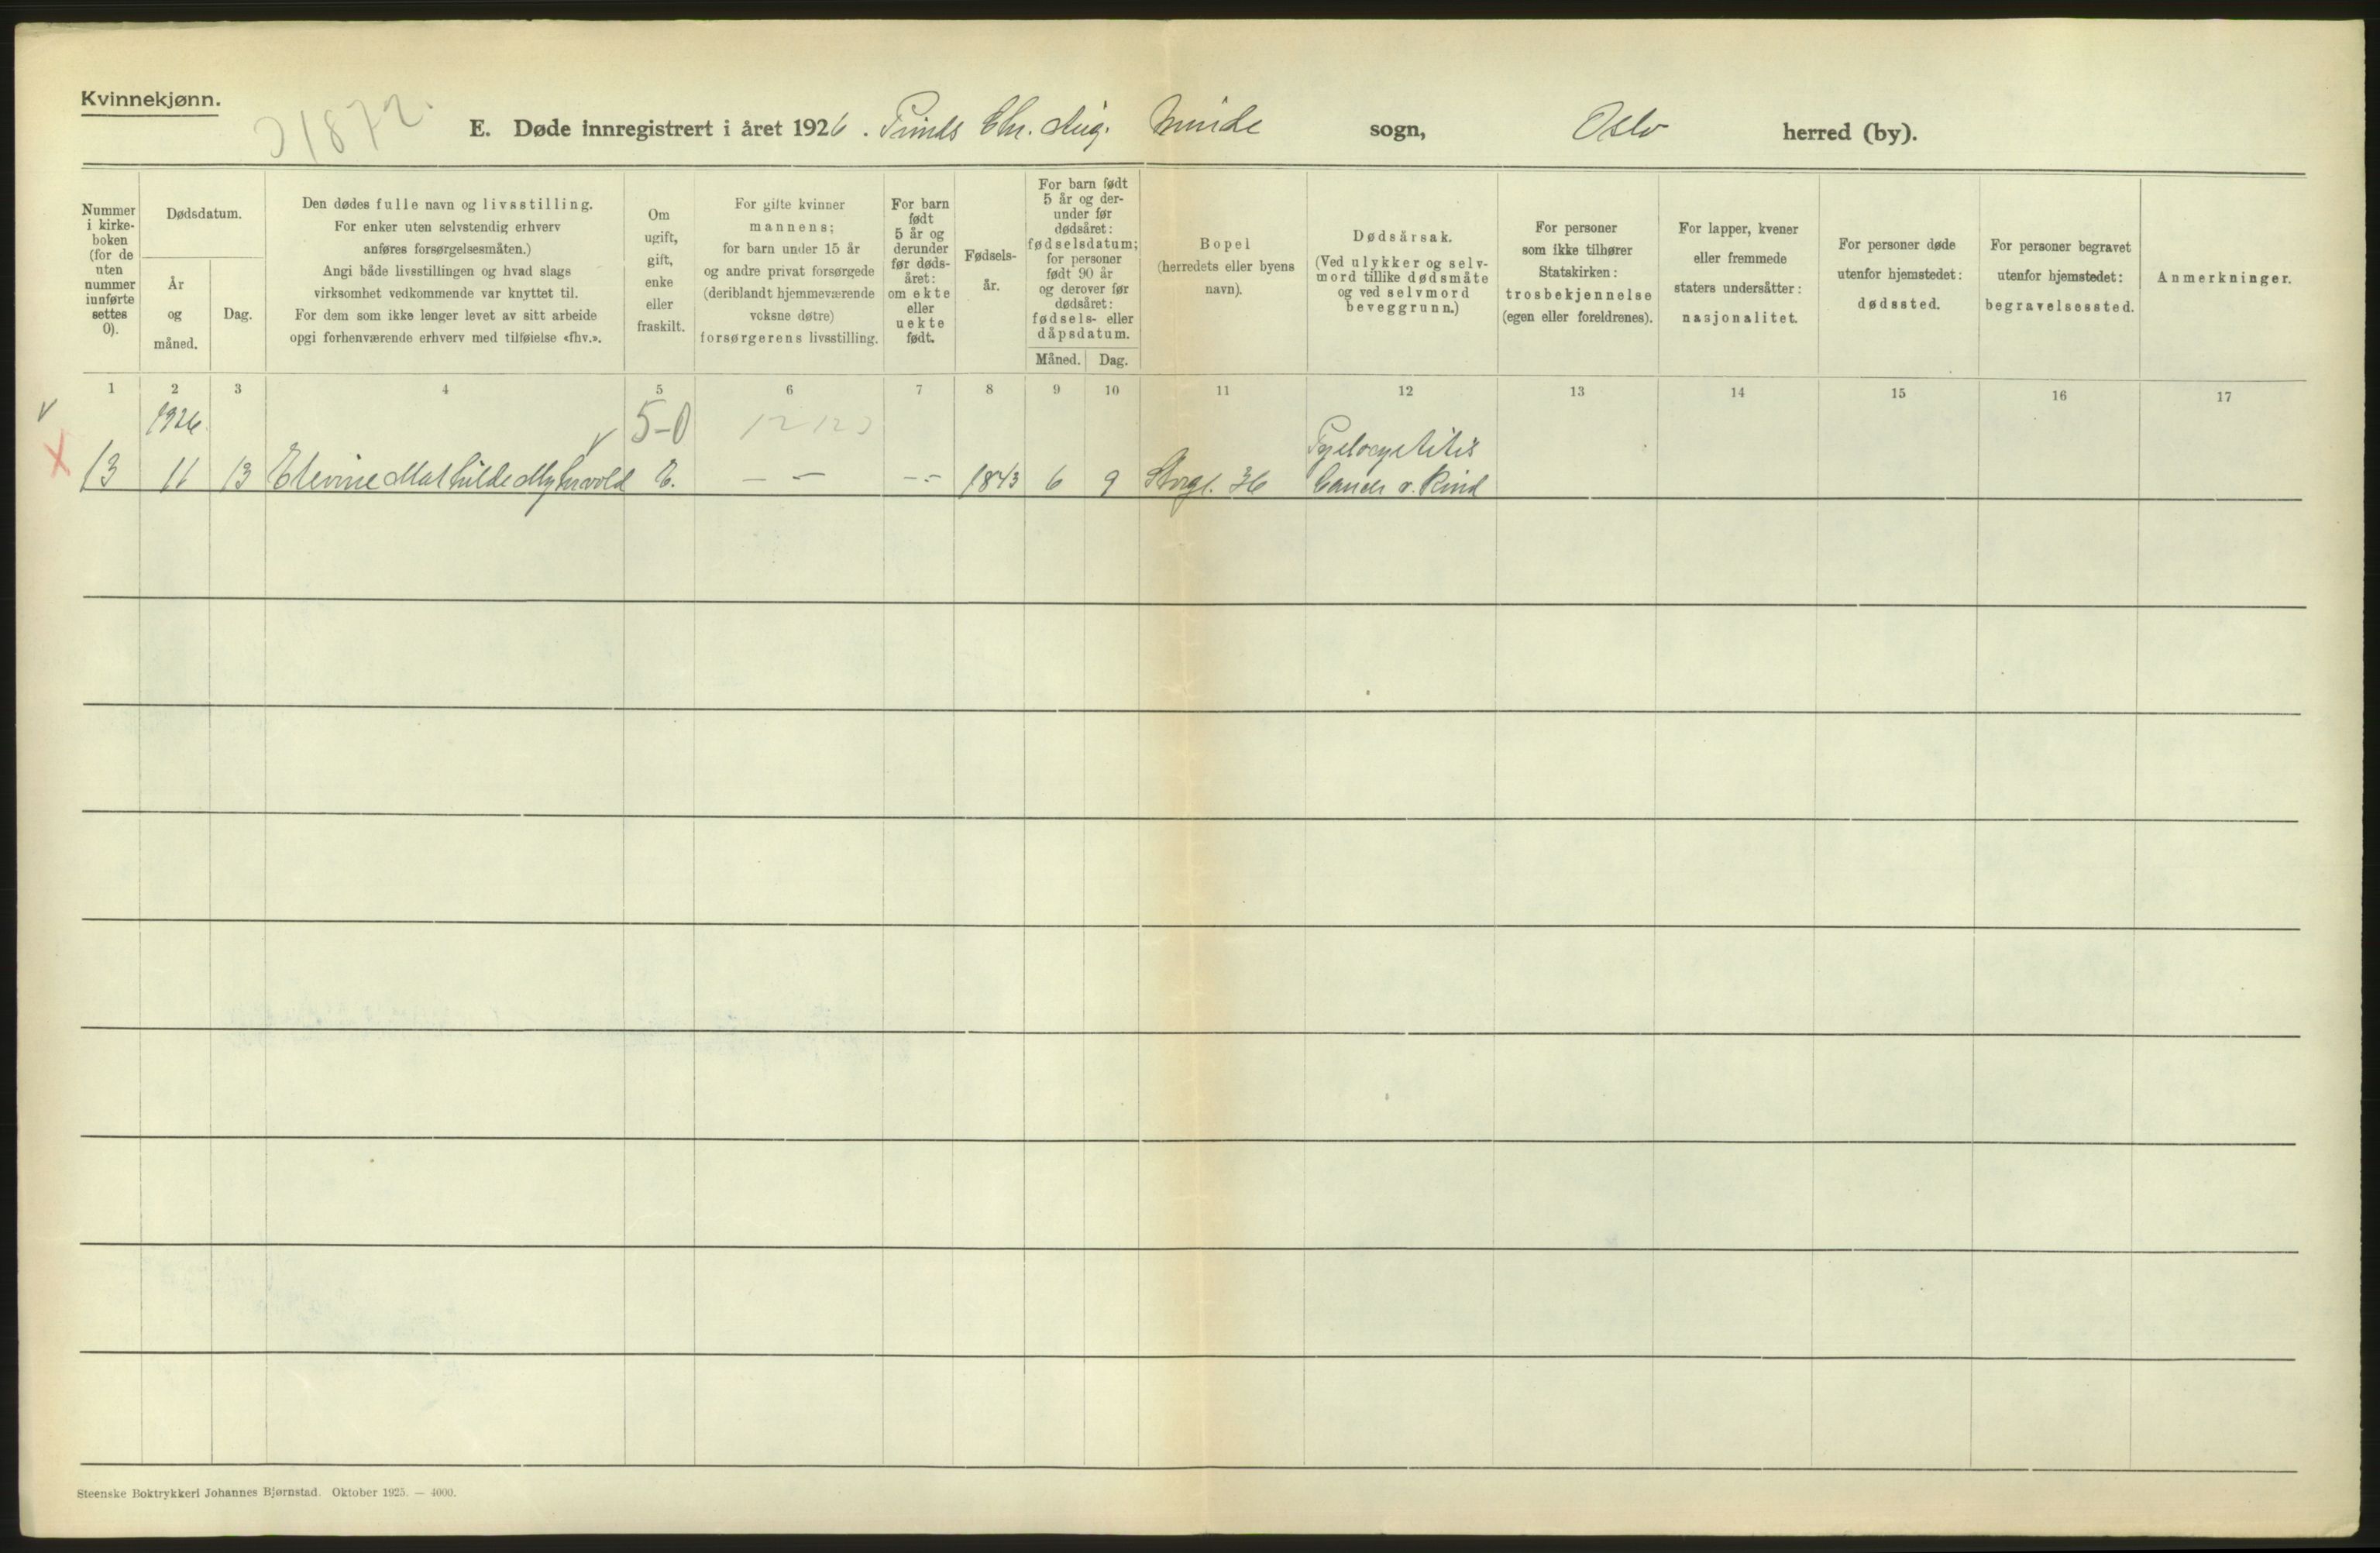 Kvinnekjønn.
E. Døde innregistrert i året 1926. Prinds Chr. Aug. Minde sogn, Oslo herred (by).
Nummer
i kirke-
boken
(for de
uten
nummer
innførte
settes
0).
Dødsdatum.
År
og
måned.
Dag.
Den dødes fulle navn og livsstilling.
For enker uten selvstendig erhverv
anføres forsørgelsesmåten.)
Angi både livsstillingen og hvad slags
virksomhet vedkommende var knyttet til.
For dem som ikke lenger levet av sitt arbeide
opgi forhenværende erhverv med tilføielse «fhv.».
Om
ugift,
gift,
enke
eller
fraskilt.
For gifte kvinner
mannens;
for barn under 15 år
og andre privat forsørgede
(deriblandt hjemmeværende
voksne døtre)
forsørgerens livsstilling.
For barn
født
5 år og
derunder
før døds-
året:
om ekte
eller
uekte
født.
Fødsels-
år.
For barn født
5 år og der-
under før
dødsåret:
fødselsdatum;
for personer
født 90 år
og derover før
dødsåret:
fødsels- eller
dåpsdatum.
Måned. Dag.
Bopel
(herredets eller byens
navn).
Dødsårsak.
(Ved ulykker og selv-
mord tillike dødsmåte
og ved selvmord
beveggrunn.)
For personer
som ikke tilhører
Statskirken:
trosbekjennelse
(egen eller foreldrenes).
For lapper, kvener
eller fremmede
staters undersåtter:
nasjonalitet.
For personer døde
utenfor hjemstedet:
dødssted.
For personer begravet
utenfor hjemstedet:
begravelsessted.
Anmerkninger.
1 2 3 4 5 6 7 8 9 10 11 12 13 14 15 16 17
1926. 5-0
Pyelocystitis
13 11 13 Elevine Mathilde Myhrvold E. — — -- 1843 6 9 Storgt. 36 Cancer v. Kind
Steenske Boktrykkeri Johannes Bjørnstad. Oktober 1925. — 4000.